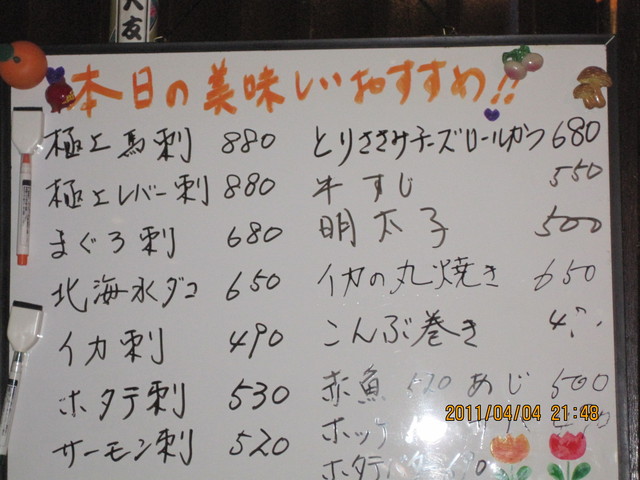 大友
本日の美味しいおすすめ!!
極上馬刺 880
極上レバー刺 880
まぐろ刺 680
北海水ダコ 650
イカ刺 490
ホタテ刺 530
サーモン刺 520
とりささみチーズロールカツ 680
牛すじ 550
明太子 500
イカの丸焼き 650
こんぶ巻き
赤魚 めじ 500
ホッケ
ホタテバター
2011/04/04 21:48